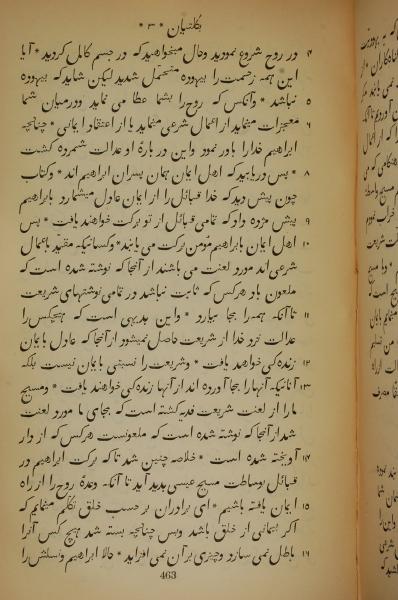 بگلتیان * ۳ *
۴ در روح شروع نمودید وحال میخواهید که در جسم کامل گردید * آیا
این همه زحمت را بیهوده متحمل شدید لیکن شاید که بیهوده
۵ نباشد * وآنکس که روح را بشما عطا می نماید ودرمیان شما
معجزات مینماید از اعمال شرعی مینماید یا از اعتقاد ایمانی * چنانچه
ابراهیم خدا را باور نمود واین در بارهٔ او عدالت شمرده گشت
۸ * پس دریابید که اهل ایمان همان پسران ابراهیم اند * وکتاب
چون پیش دید که خدا قبائل را از ایمان عادل میشمارد بابراهیم
۹ پیش مژده داد که تمامی قبائل از تو برکت خواهند یافت * پس
۱۰ اهل ایمان بابراهیم مؤمن برکت می یابند * وکسانیکه مقید باعمال
شرعی اند مورد لعنت می باشند از آنجا که نوشته شده است که
ملعون باد هرکس که ثابت نباشد در تمامی نوشتهای شریعت
۱۱ تا آنکه همه را بجا بیارد * واین بدیهی است که هیچکس را
عدالت نزد خدا از شریعت حاصل نمیشود از آنجا که عادل بایمان
۱۲ زندگی خواهد یافت * وشریعت را نسبتی بایمان نیست بلکه
۱۳ آنانیکه آنها را بجا آورده اند از آنها زندگی خواهند یافت * ومسیح
ما را از لعنت شریعت فدیه گشته است که بجای ما مورد لعنت
شد از آنجا که نوشته شده است که ملعونست هرکس که از دار
۱۴ آویخته شده است * خلاصه چنین شد تا که برکت ابراهیم در
قبائل بوساطت مسیح عیسی پدید آید تا آنکه وعدهٔ روح را از راه
۱۵ ایمان یافته باشیم * ای برادران بر حسب خلق تکلم مینمایم که
اگر پیمانی از خلق باشد وپس چنانچه بسته شد هیچ کس آنرا
۱۶ باطل نمی سازد وچیزی بر آن نمی افزاید * حالا بابراهیم ونسلش را
463